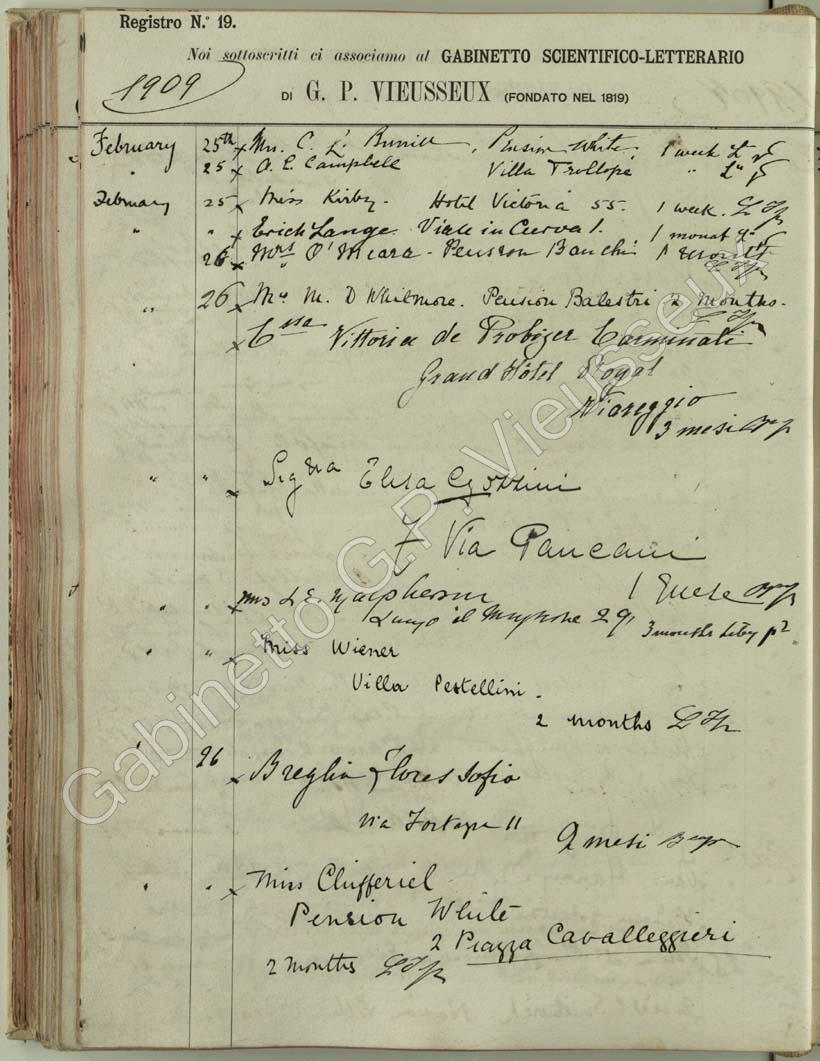 Registro N.º 19.
Noi sottoscritti ci associamo al GABINETTO SCIENTIFICO-LETTERARIO
1909
DI G. P. VIEUSSEUX (FONDATO NEL 1819)
February 25th x Mrs. C. L. Pension White. 1 week
" 25 x A. E. Campbell Villa Trollope "
February 25 x Miss Kirby. Hotel Victoria 55. 1 week.
" " x Erich Lange Viale in Curva 1. 1 monat
26 x Mrs O'Meara - Pension Banchi 1 month
" 26 x M. D Whitmore. Pension Balestri 2 months.
x Cssa Vittoria de Probizer Carminati
Grand Hôtel Royal
Viareggio
3 mesi
" " x Sigra Elisa Gozzini
7 Via Panciani
1 mese
" " x Mrs L E. Macpherson
Lungo il Mugnone 29 3 months
" " x Miss Wiener
Villa Pestellini.
2 months
" 26 x Breglia Flores Sofia
Via 11
2 mesi
" " x Miss
Pension White
2 Piazza Cavalleggieri
2 months
Gabinetto G.P. Vieusseux